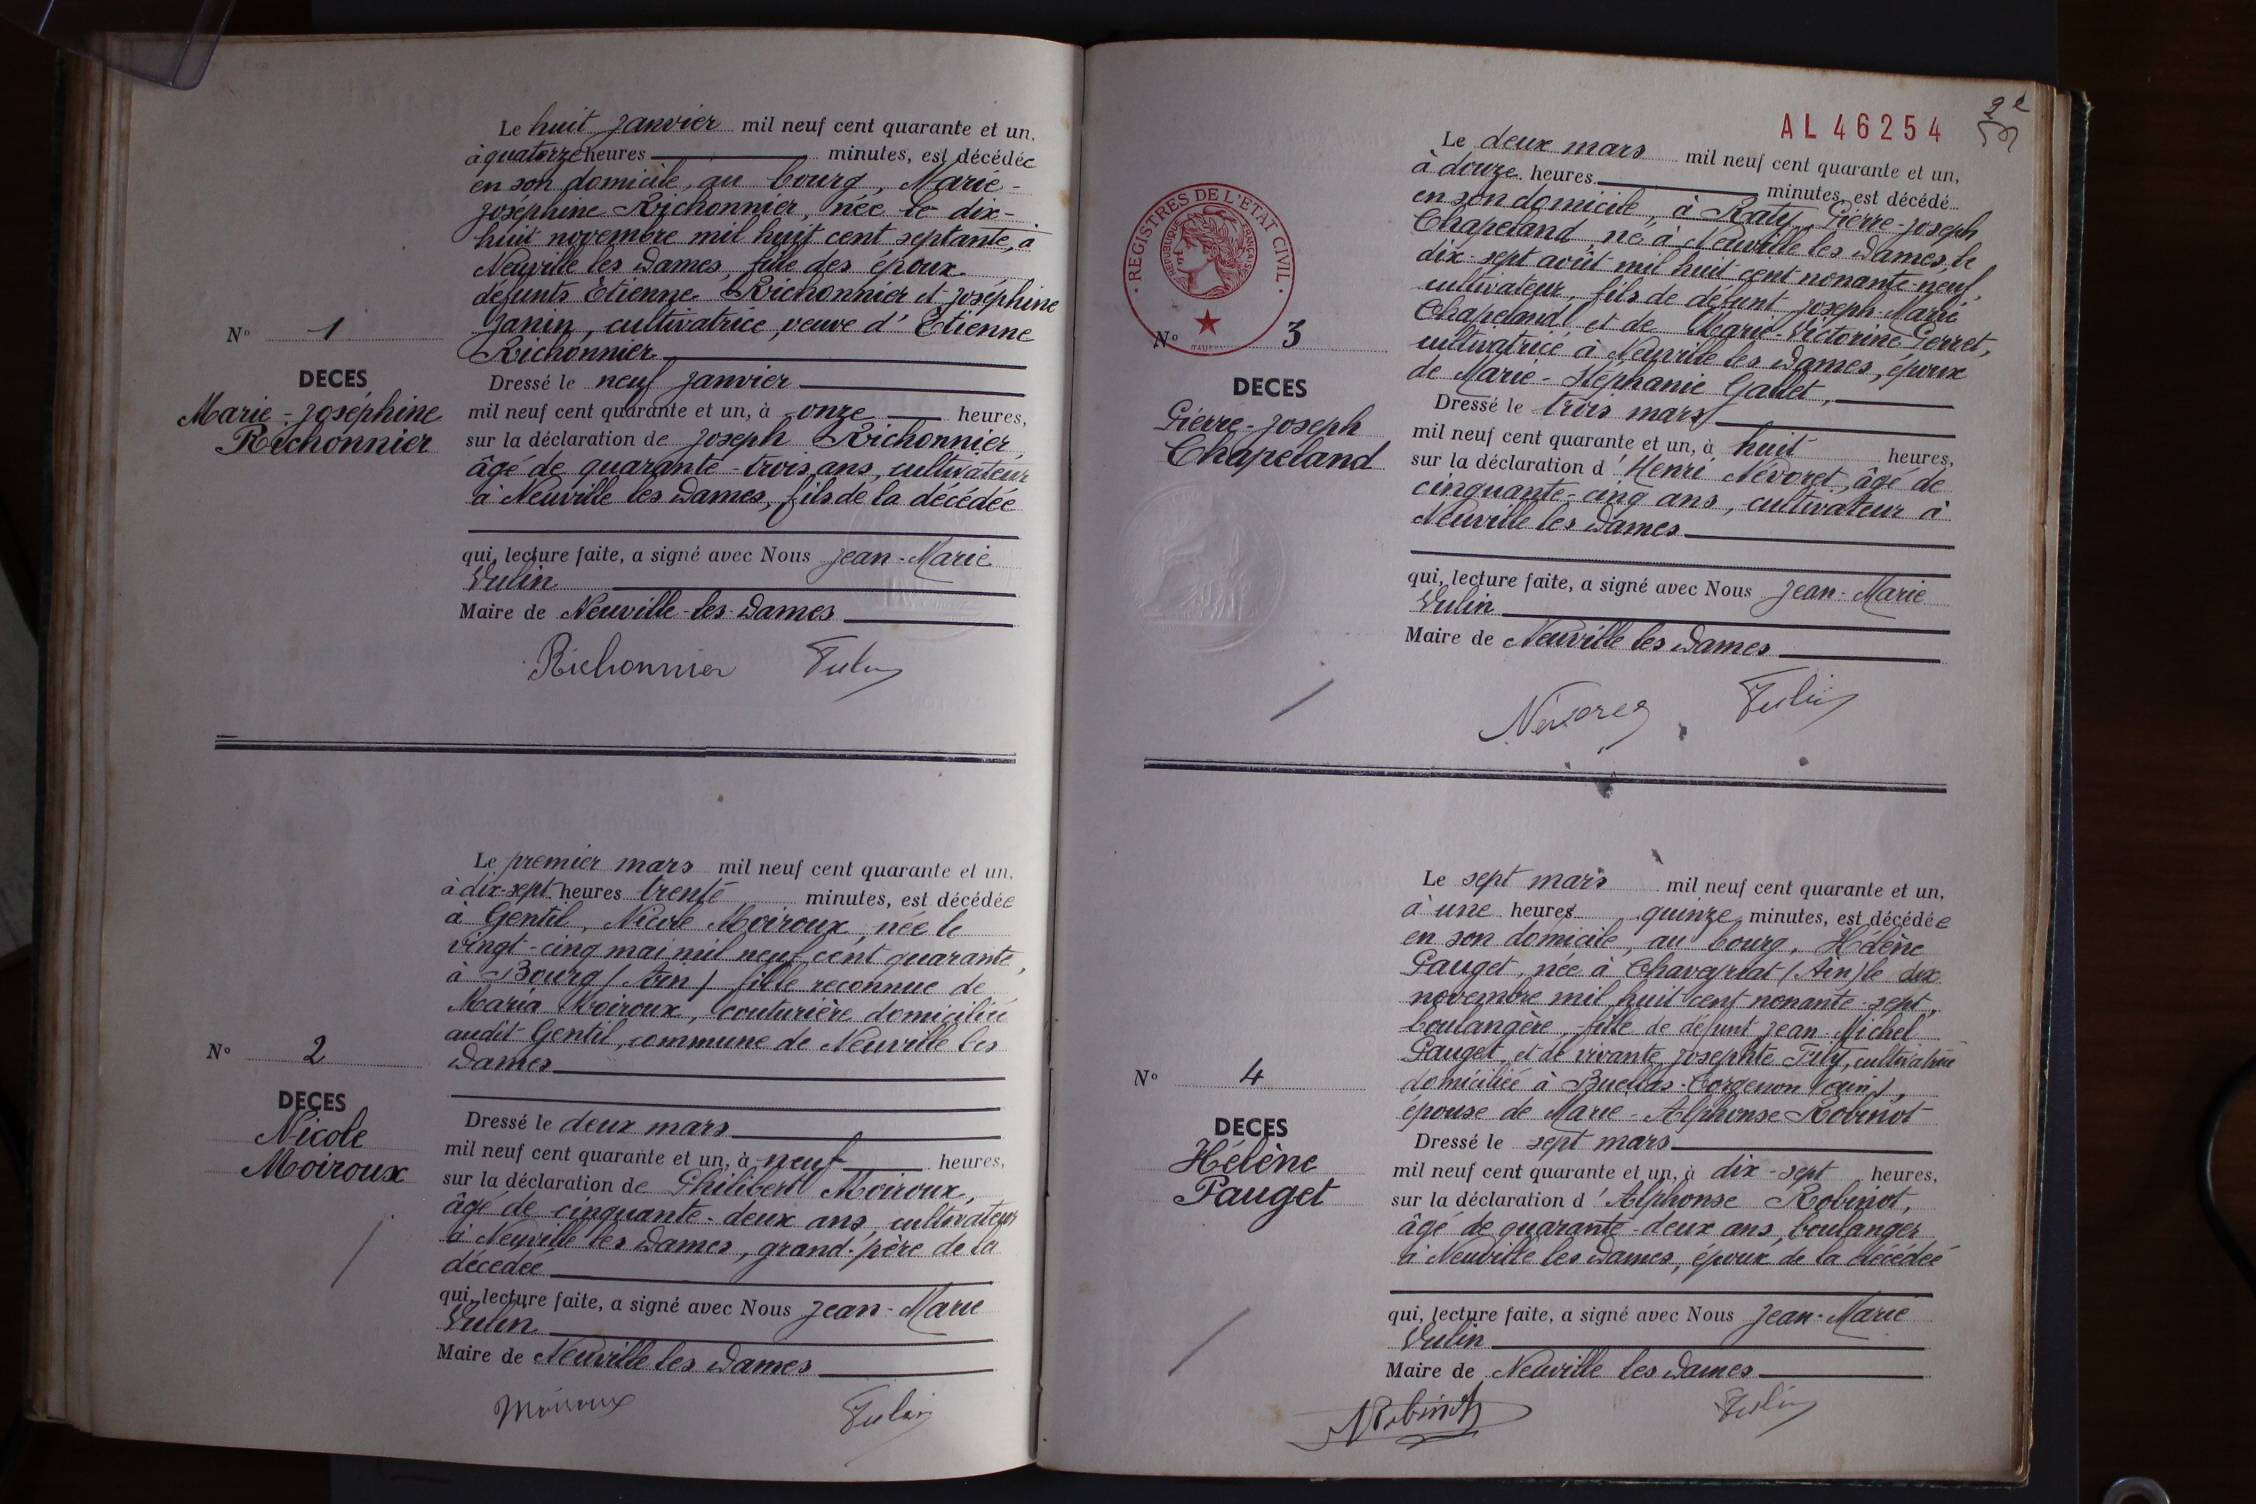 Le huit janvier mil neuf cent quarante et un,
à quatorze heures minutes, est décédée
en son domicile, au bourg, Marie-
Joséphine Richonnier, née le dix-
huit novembre mil huit cent septante, à
Neuville les Dames, fille des époux
défunts Etienne Richonnier et Joséphine
Janin, cultivatrice, veuve d'Etienne
Richonnier
N° 1
DECES
Marie-Joséphine
Richonnier
Dressé le neuf janvier
mil neuf cent quarante et un, à onze heures,
sur la déclaration de Joseph Richonnier,
âgé de quarante-trois ans, cultivateur
à Neuville les Dames, fils de la décédée
qui, lecture faite, a signé avec Nous Jean-Marie
Vulin
Maire de Neuville-les-Dames
Richonnier Vulin
Le premier mars mil neuf cent quarante et un,
à dix-sept heures trente minutes, est décédée
à Gentil, Nicole Moiroux, née le
vingt-cinq mai mil neuf cent quarante,
à Bourg (Ain) fille reconnue de
Maria Moiroux, couturière domiciliée
audit Gentil, commune de Neuville les
Dames
N° 2
DECES
Nicole
Moiroux
Dressé le deux mars
mil neuf cent quarante et un, à neuf heures,
sur la déclaration de Philibert Moiroux,
âgé de cinquante-deux ans, cultivateur
à Neuville les Dames, grand-père de la
décédée
qui, lecture faite, a signé avec Nous Jean-Marie
Vulin
Maire de Neuville les Dames
Moiroux Vulin
AL 46254
2e
REGISTRES DE L'ETAT CIVIL
REPUBLIQUE FRANCAISE
Le deux mars mil neuf cent quarante et un,
à douze heures minutes, est décédé
en son domicile, à Raty, Pierre-Joseph
Chapeland né à Neuville les Dames, le
dix-sept août mil huit cent nonante-neuf,
cultivateur, fils de défunt Joseph-Marie
Chapeland et de Marie-Victorine Perret,
cultivatrice à Neuville les Dames, époux
de Marie-Stéphanie Gallet,
N° 3
DECES
Pierre-Joseph
Chapeland
Dressé le trois mars
mil neuf cent quarante et un, à huit heures,
sur la déclaration d'Henri Névoret, âgé de
cinquante-cinq ans, cultivateur à
Neuville les Dames
qui, lecture faite, a signé avec Nous Jean-Marie
Vulin
Maire de Neuville les Dames
Névoret Vulin
Le sept mars mil neuf cent quarante et un,
à une heures quinze minutes, est décédée
en son domicile, au bourg, Hélène
Pauget, née à Chaveyriat (Ain) le dix
novembre mil huit cent nonante-sept,
boulangère, fille de défunt Jean-Michel
Pauget, et de vivante Josephte Tily, cultivatrice
domiciliée à Buellas-Corgenon (Ain),
épouse de Marie-Alphonse Robinot
N° 4
DECES
Hélène
Pauget
Dressé le sept mars
mil neuf cent quarante et un, à dix-sept heures,
sur la déclaration d'Alphonse Robinot,
âgé de quarante-deux ans, boulanger
à Neuville les Dames, époux de la décédée
qui, lecture faite, a signé avec Nous Jean-Marie
Vulin
Maire de Neuville les Dames
Robinot Vulin